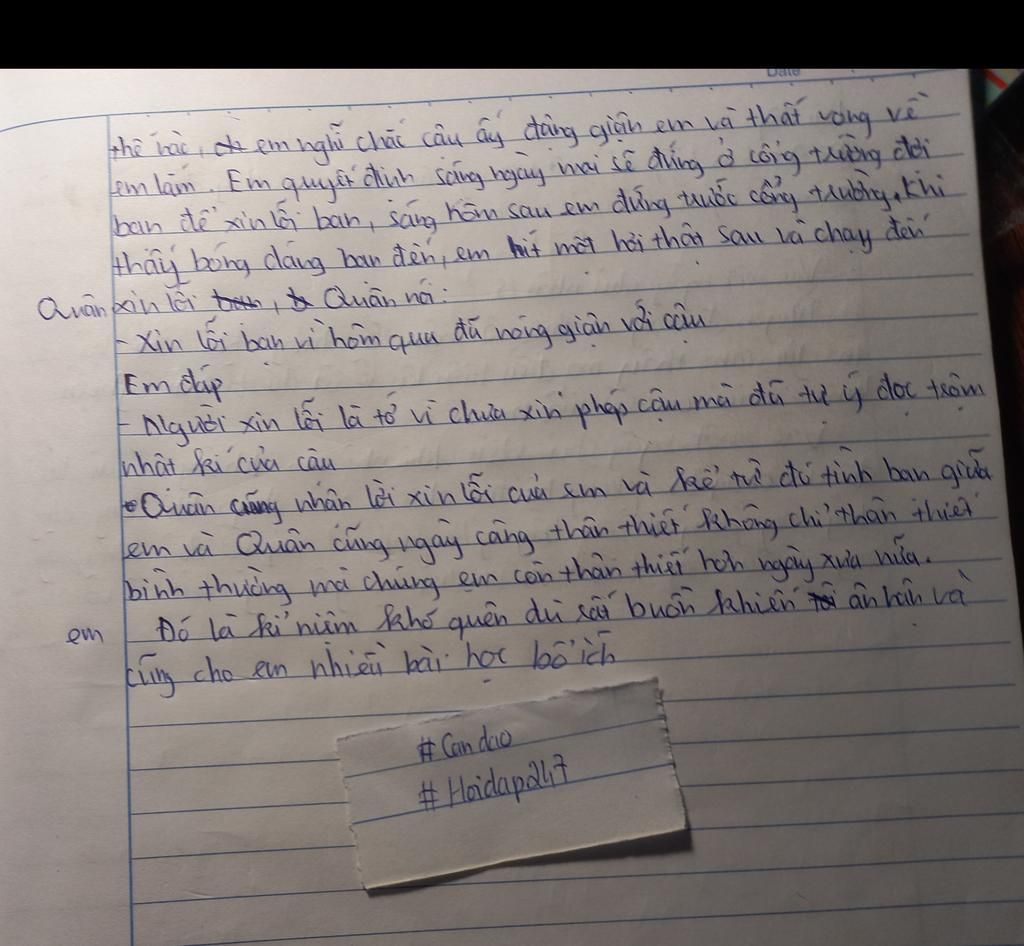 Date
thế nào, em nghĩ chắc cậu ấy đang giận em và thất vọng về
em lắm. Em quyết định sáng ngày mai sẽ đứng ở cổng trường đợi
bạn để xin lỗi bạn, sáng hôm sau em đứng trước cổng trường, khi
thấy bóng dáng bạn đến, em hít một hơi thật sau và chạy đến
Quân xin lỗi, Quân nói:
- Xin lỗi bạn vì hôm qua đã nóng giận với cậu
Em đáp
- Người xin lỗi là tớ vì chưa xin phép cậu mà đã tự ý đọc trộm
nhật kí của cậu
Quân cũng nhận lời xin lỗi của em và kể từ đó tình bạn giữa
em và Quân cũng ngày càng thân thiết không chỉ thân thiết
bình thường mà chúng em còn thân thiết hơn ngày xưa nữa.
Đó là kỉ niệm khó quên dù rất buồn khiến em ân hận và
cũng cho em nhiều bài học bổ ích
#Candao
#Hoidap247